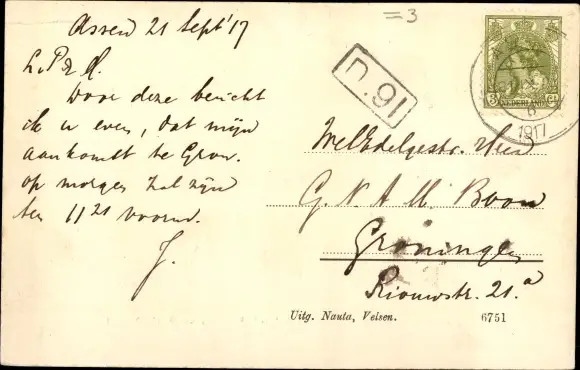 Assen 21 Sept '17
=3
Door deze bericht
ik u even, dat mijn
aankomst te Gron.
op morgen zal zijn
ten 11 21 voorm.
J.
n. 91
3 Ct
NEDERLAND
6
1917
WelEdelgestr. Heer
G. N. A. M. Boon
Groningen
Riouwstr. 21.a
Uitg. Nauta, Velsen.
6751